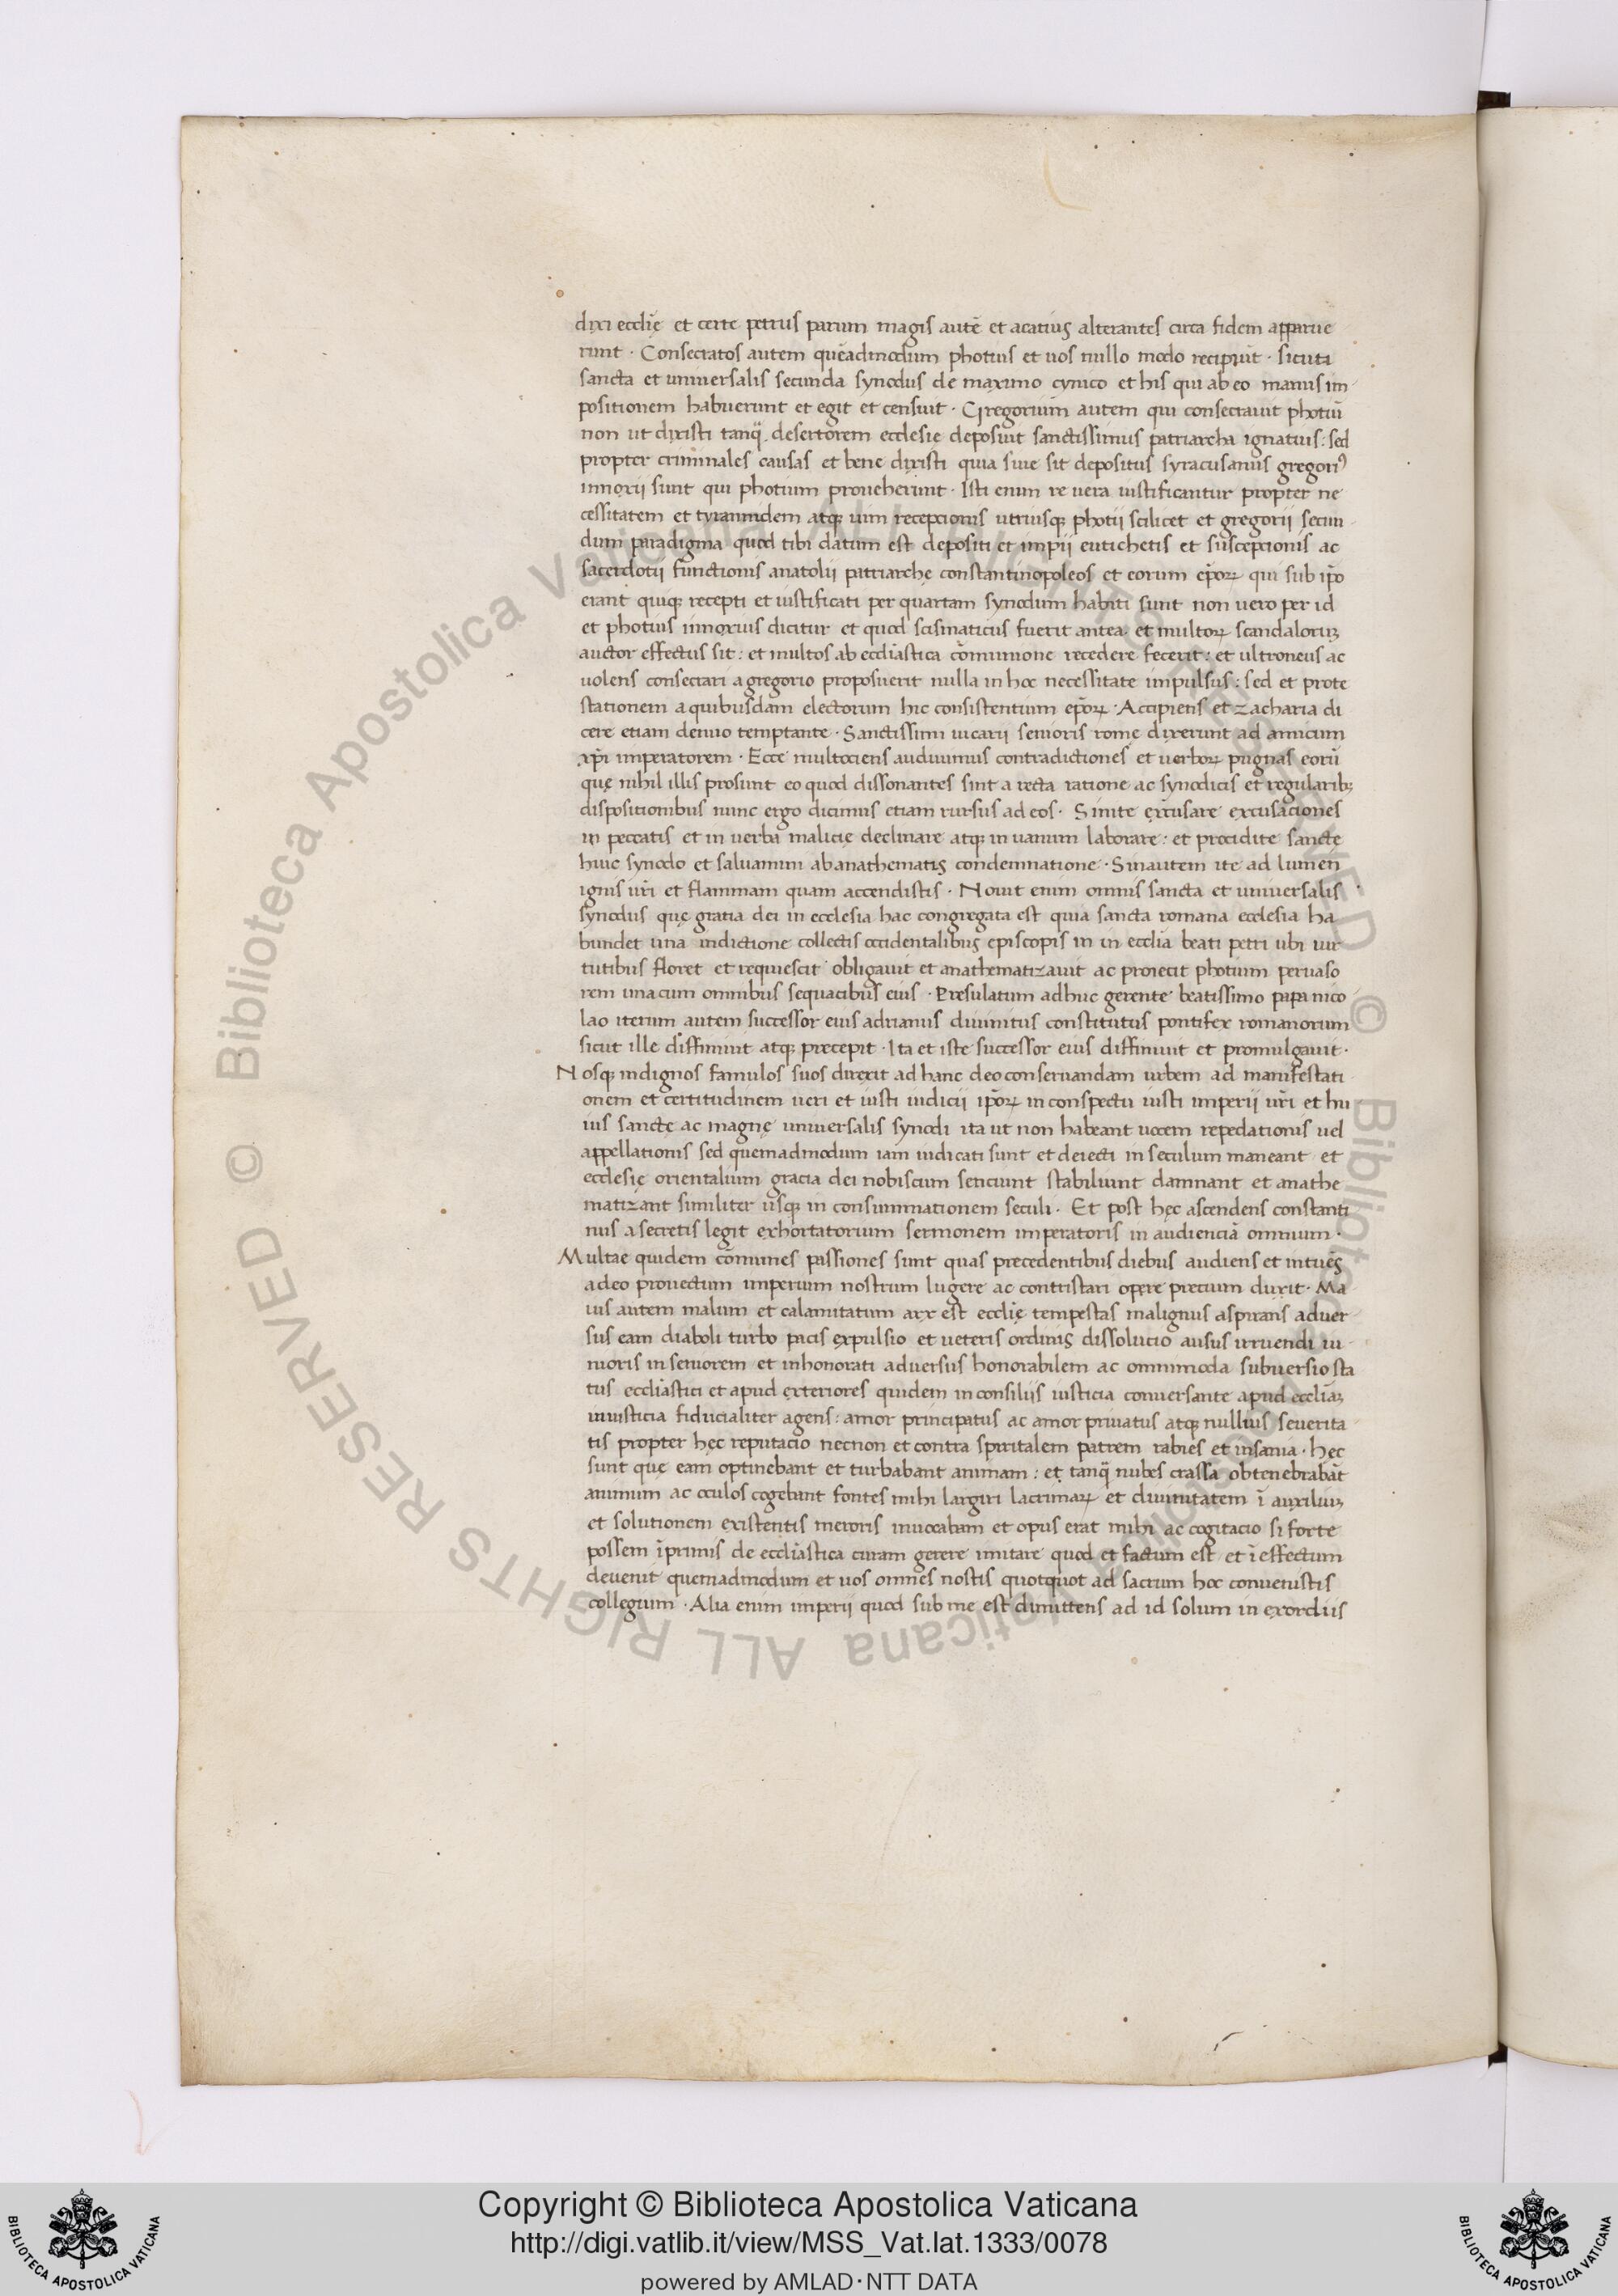 dixi ecclię et certe petrus parum magis autē et acatius alterantes circa fidem apparue
runt · Consecratos autem quēadmodum photius et uos nullo modo recipiūt · sicuti
sancta et uniuersalis secunda synodus de maximo cynico et his qui ab eo manus im
positionem habuerunt et egit et censuit · Gregorium autem qui consecrauit photiū
non ut dixisti tanq̄ desertorem ecclesię deposuit sanctissimus patriarcha ignatius : sed
propter criminales causas et bene dixisti quia siue sit depositus syracusanus gregoriꝰ
innoxii sunt qui photium prouexerunt · Isti enim re uera iustificantur propter ne
cessitatem et tyrannidem atqꝫ uim recepcionis utriusqꝫ photii scilicet et gregorii secun
dum paradigma quod tibi datum est depositi et impii eutichetis et suscepcionis ac
sacerdotii functionis anatolii patriarchę constantinopoleos et eorum ep̄orꝝ qui sub ip̄o
erant quiqꝫ recepti et iustificati per quartam synodum habiti sunt non uero per id
et photius innoxius dicitur et quod scismaticus fuerit antea et multorꝝ scandalorūꝫ
auctor effectus sit : et multos ab eccl̄iastica cōmunione recedere fecerit : et ultroneus ac
uolens consecrari a gregorio proposuerit nulla in hoc necessitate impulsus : sed et prote
stationem a quibusdam electorum hic consistentium ep̄orꝝ · Accipiens et zacharia di
cere etiam denuo temptante · Sanctissimi uicarii senioris romę dixerunt ad amicum
xp̄i imperatorem · Ecce multociens audiuimus contradictiones et uerborꝝ pugnas eorū
quę nihil illis prosunt eo quod dissonantes sint a recta ratione ac synodicis et regularibꝫ
dispositionibus nunc ergo dicimus etiam rursus ad eos · Sinite excusare excusaciones
in peccatis et in uerba malicię declinare atqꝫ in uanum laborare : et procidite sanctę
huic synodo et saluamini ab anathematis condemnatione · Sinautem ite ad lumen
ignis ur̄i et flammam quam accendistis · Nouit enim omnis sancta et uniuersalis
synodus quę gratia dei in ecclesia hac congregata est quia sancta romana ecclesia ha
bundet una indictione collectis occidentalibus episcopis in in eccl̄ia beati petri ubi uir
tutibus floret et requiescit obligauit et anathematizauit ac proiecit photium peruaso
rem unacum omnibus sequacibus eius · Presulatum adhuc gerente beatissimo papa nico
lao iterum autem successor eius adrianus diuinitus constitutus pontifex romanorum
sicut ille diffiniuit atqꝫ precepit · Ita et iste successor eius diffiniuit et promulgauit ·
Nosqꝫ indignos famulos suos direxit ad hanc deo conseruandam urbem ad manifestati
onem et certitudinem ueri et iusti iudicii ip̄orꝝ in conspectu iusti imperii ur̄i et hu
ius sanctę ac magnę uniuersalis synodi ita ut non habeant uocem repedationis uel
appellationis sed quemadmodum iam iudicati sunt et deiecti in seculum maneant et
ecclesię orientalium gracia dei nobiscum senciunt stabiliunt damnant et anathe
matizant similiter usqꝫ in consummationem seculi · Et post hęc ascendens constanti
nus a secretis legit exhortatorium sermonem imperatoris in audienciā omnium ·
Multae quidem cōmunes passiones sunt quas precedentibus diebus audiens et intuēs
adeo prouectum imperium nostrum lugere ac contristari opere precium duxit · Ma
ius autem malum et calamitatum arx est eccl̄ię tempestas malignus aspirans aduer
sus eam diaboli turbo pacis expulsio et ueteris ordinis dissolucio ausus irruendi iu
nioris in seniorem et inhonorati aduersus honorabilem ac omnimoda subuersio sta
tus eccl̄iastici et apud exteriores quidem in consiliis iusticia conuersante apud eccl̄iāꝫ
iniusticia fiducialiter agens : amor principatus ac amor priuatus atqꝫ nullius seuerita
tis propter hęc reputacio necnon et contra spiritalem patrem rabies et insania · hęc
sunt quę eam optinebant et turbabant animam : et tanq̄ nubes crassa obtenebrabāt
animum ac oculos cogebant fontes mihi largiri lacrimarꝝ et diuinitatem ī auxiliuꝫ
et solutionem existentis meroris inuocabam et opus erat mihi ac cogitacio si forte
possem īprimis de eccl̄iastica curam gerere unitate quod et factum est et ī effectum
deuenit quemadmodum et uos omnes nostis quotquot ad sacrum hoc conuenistis
collegium · Alia enim imperii quod sub me est dimittens ad id solum in exordiis
Copyright © Biblioteca Apostolica Vaticana
http://digi.vatlib.it/view/MSS_Vat.lat.1333/0078
powered by AMLAD·NTT DATA
BIBLIOTECA APOSTOLICA VATICANA
BIBLIOTECA APOSTOLICA VATICANA
© Biblioteca Apostolica Vaticana ALL RIGHTS RESERVED
© Biblioteca Apostolica Vaticana ALL RIGHTS RESERVED